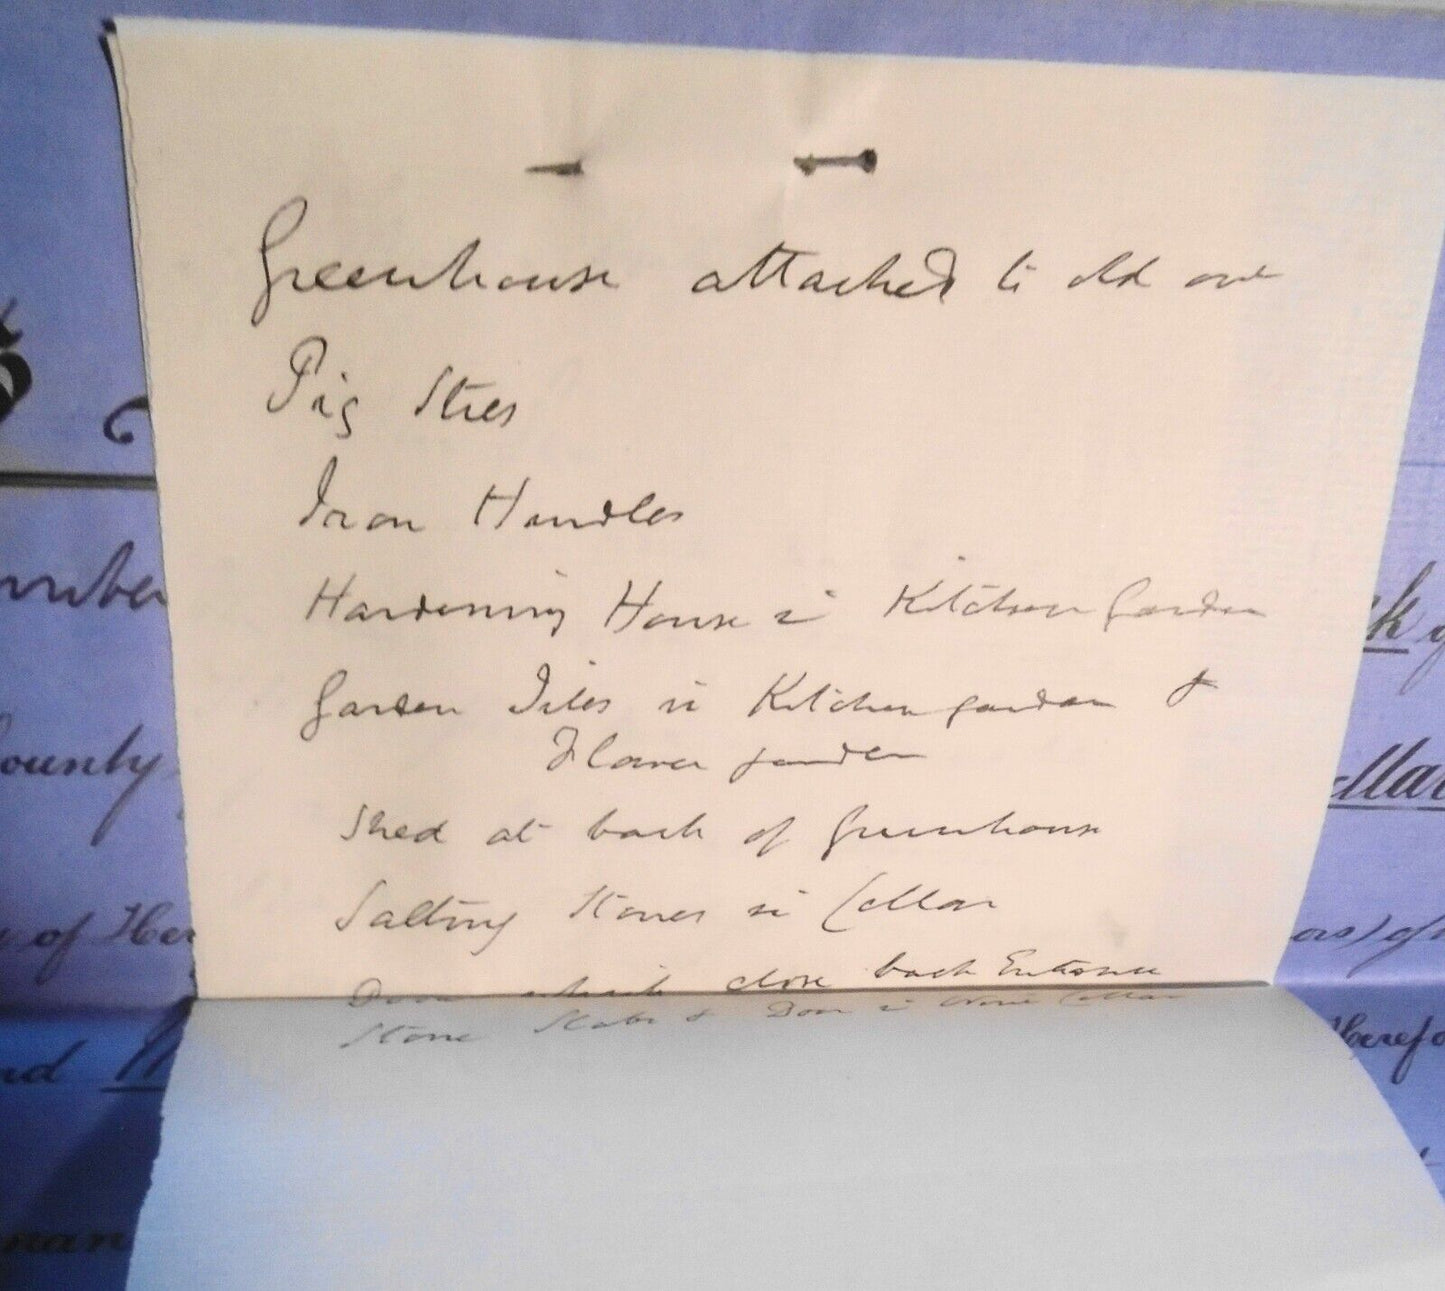 Greenhouse attached to old one
Pig Sties
Iron Handles
Hardening House in Kitchen Garden
Garden Tiles in Kitchen garden &
Flower garden
Shed at back of Greenhouse
Salting Stones in Cellar
Door which close back Entrance
Stone Slabs & Door in Wine Cellar
ounty
of Her
Herefo